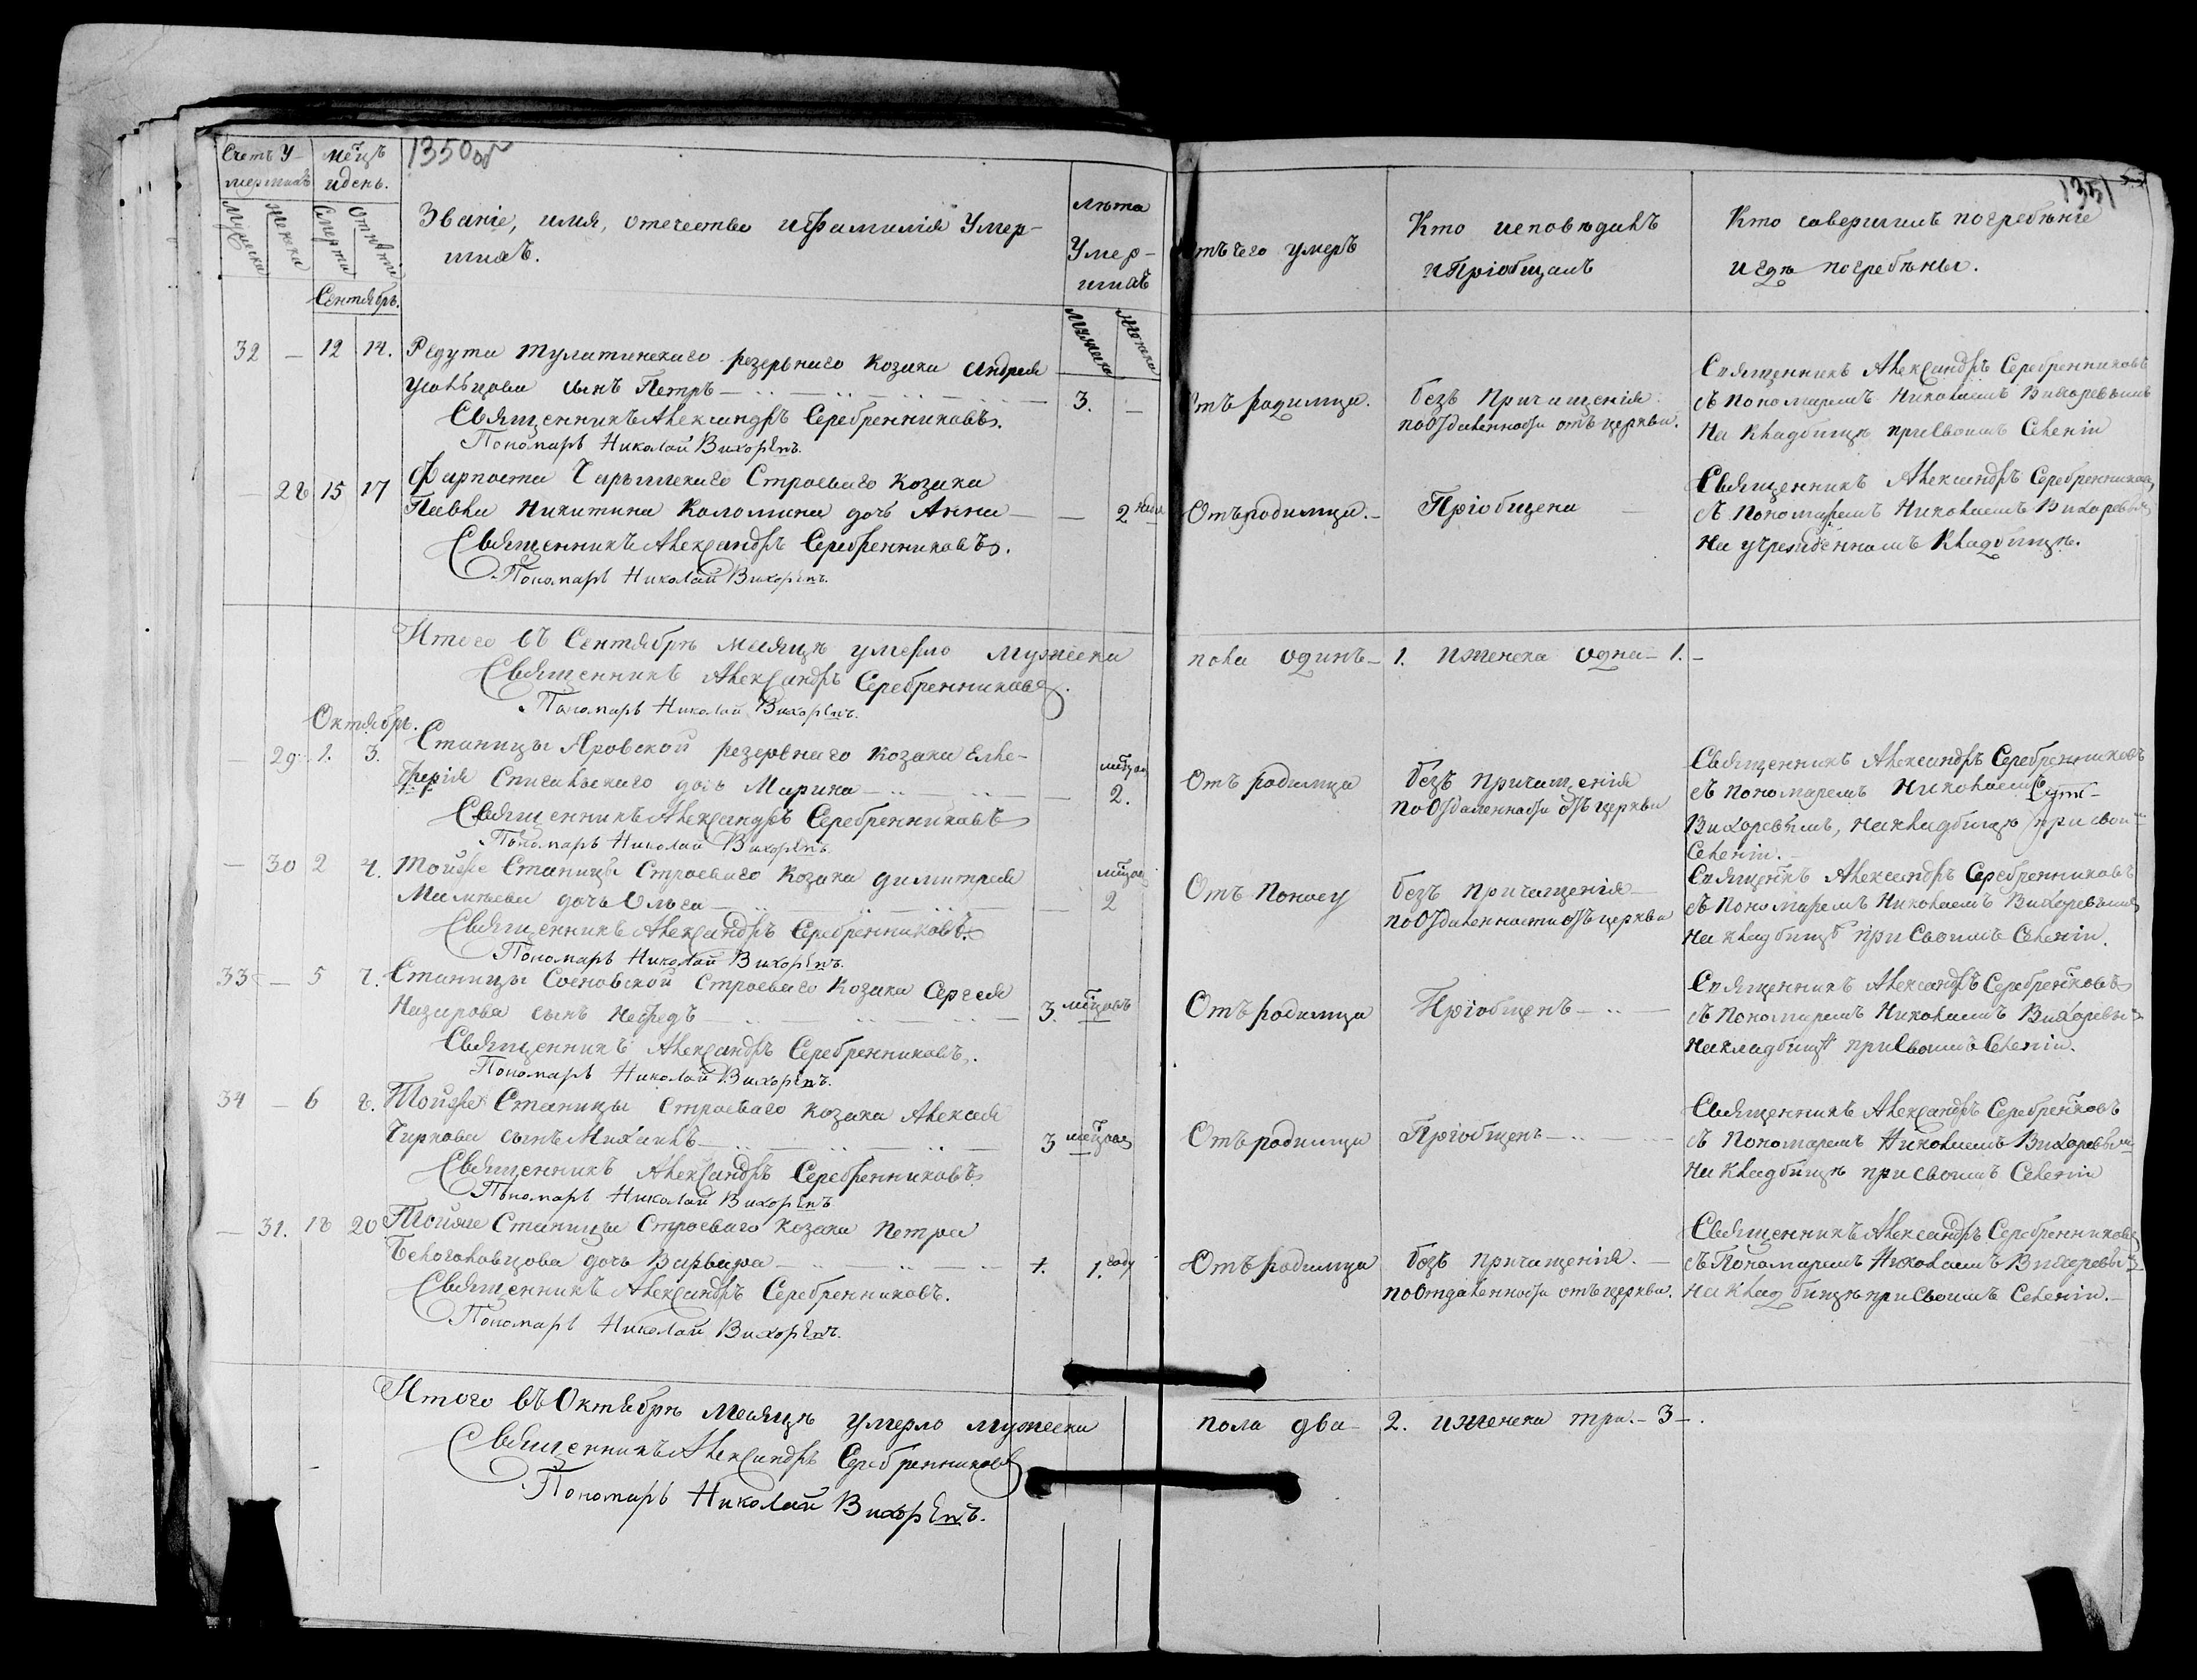 1350 об
1351
Счетъ У-
мершихъ
Мужеска
Женска
мс̃цъ
и день.
Смерти
Отпѣтія
Сентябрь.
Званіе, имя, отечество и Фамилія Умер-
шихъ.
лѣта
Умер-
шихъ
Мужеска
Женска
Отъ чего умеръ
Кто исповѣдалъ
и Пріобщалъ
Кто совершилъ погребѣніе
и гдѣ погребѣны.
32 — 12 14. Редута Тулатинскаго резервнаго Козака Андрея
Усольцова сынъ Петръ — 3. —
Священникъ Александръ Серебренниковъ.
Пономарь Николай Вихоревъ.
Отъ родимца.
безъ Причащенія
по отдаленности отъ церкви.
Священникъ Александръ Серебренниковъ
съ пономаремъ Николаемъ Вихоревымъ
На Кладбищѣ при Своемъ Селеніи
— 28 15 17 Фарпоста Чарышскаго Строеваго Козака
Павла Никитина Каломина дочь Анна — — 2 неде
Священникъ Александръ Серебренниковъ.
Пономарь Николай Вихоревъ.
Отъ родимца. —
Пріобщена —
Священникъ Александръ Серебренниковъ
съ Пономаремъ Николаемъ Вихоревым
На учрежденномъ Кладбищѣ.
Итого въ Сентябрѣ месяцѣ умерло мужеска пола одинъ — 1. и женска одна — 1. —
Священникъ Александръ Серебренниковъ.
Пономарь Николай Вихоревъ.
Октябрь.
— 29. 1. 3. Станицы Яровской резервнаго Козака Елев-
ферія дочь Марина — — мс̃цов 2.
Священникъ Александръ Серебренниковъ
Пономарь Николай Вихоревъ.
Отъ родимца
безъ причащенія
по отдаленности отъ церкви
Священникъ Александръ Серебренниковъ
съ пономаремъ Николаемъ
Вихоревымъ, на кладбищѣ при свои
Селеніи.
— 30 2 4. Тойже Станицы Строеваго Козака Димитрея
дочь Ольга — — мс̃цов 2
Священникъ Александръ Серебренниковъ.
Пономарь Николай Вихоревъ.
Отъ Поносу
безъ причащенія —
по отдаленности отъ церкви
Священкъ Александръ Серебренниковъ
съ Пономаремъ Николаемъ Вихоревымъ
На кладбищѣ при Своемъ Селеніи.
33 — 5 7. Станицы Сосновской Строеваго Козака Сергея
Назарова сынъ Нефедъ — 3. мс̃цовъ
Священникъ Александръ Серебренниковъ.
Пономарь Николай Вихоревъ.
Отъ родимца
Пріобщенъ —
Священникъ Александръ Серебренковъ
съ Пономаремъ Николаемъ Вихоревы
На кладбищѣ при Своемъ Селеніи.
34 — 6 8. Тойже Станицы Строеваго Козака Алексея
Чиркова сынъ Михаилъ — 3 мс̃цов
Священникъ Александръ Серебренниковъ
Пономарь Николай Вихоревъ
Отъ родимца
Пріобщенъ —
Священникъ Александръ Серебренковъ
съ Пономаремъ Николаемъ Вихоревым
На Кладбищѣ при Своемъ Селеніи
— 31. 18 20 Тойже Станицы Строеваго Козака Петра
Белоголовцова дочь Варвара — 1. 1. году
Священникъ Александръ Серебренниковъ.
Пономарь Николай Вихоревъ.
Отъ родимца
безъ причащенія. —
по отдаленности отъ церкви.
Священникъ Александръ Серебренниковъ
съ Пономаремъ Николаемъ Вихоревы
На Кладбищѣ при Своемъ Селеніи. —
Итого въ Октябрѣ Месяцѣ умерло мужеска пола два — 2. и женска три. — 3 — .
Священникъ Александръ Серебренниковъ
Пономарь Николай Вихоревъ.